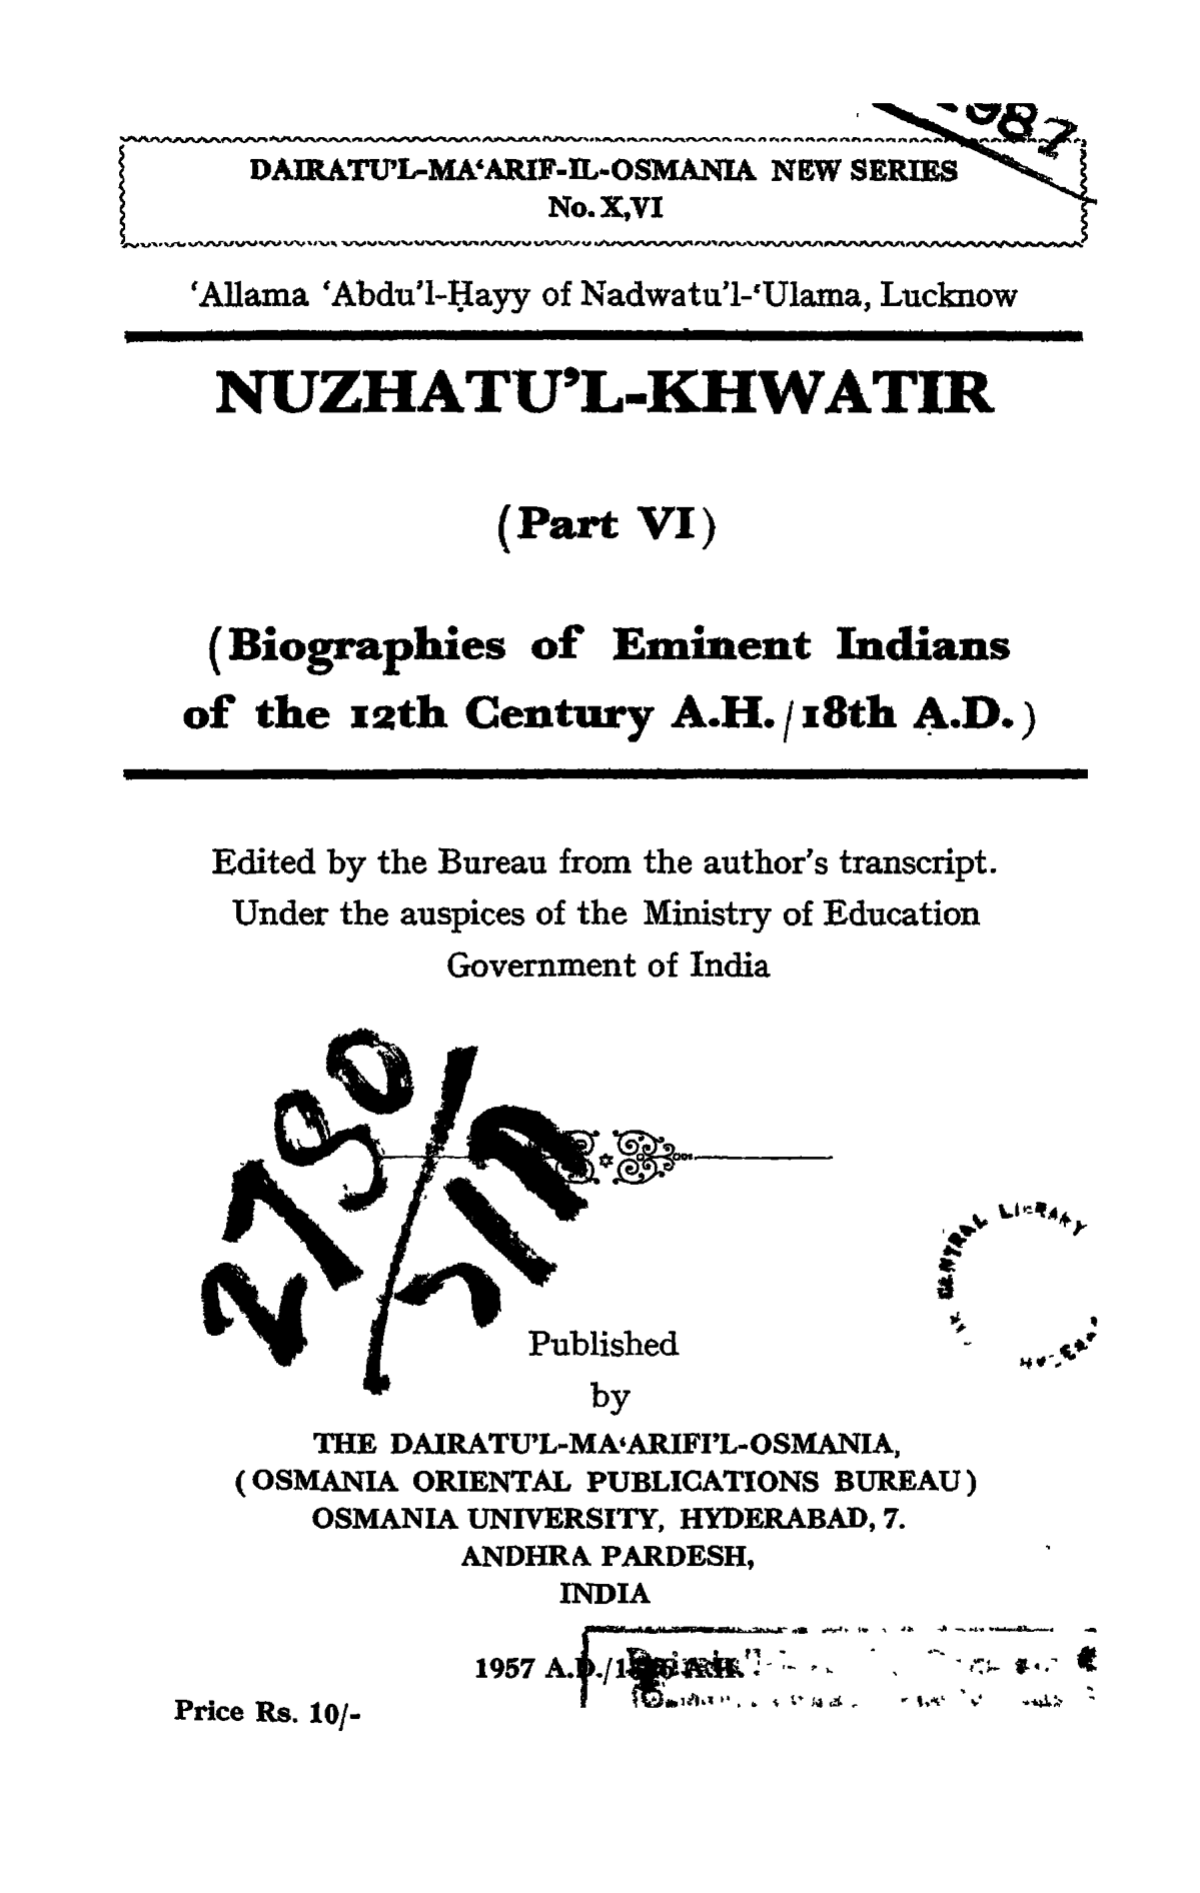 987
DAIRATU’L-MA‘ARIF-IL-OSMANIA NEW SERIES
No. X,VI
‘Allama ‘Abdu’l-Ḥayy of Nadwatu’l-‘Ulama, Lucknow
NUZHATU’L-KHWATIR
(Part VI)
(Biographies of Eminent Indians
of the 12th Century A.H./18th A.D.)
Edited by the Bureau from the author’s transcript.
Under the auspices of the Ministry of Education
Government of India
CENTRAL LIBRARY
Published
by
THE DAIRATU’L-MA‘ARIFI’L-OSMANIA,
(OSMANIA ORIENTAL PUBLICATIONS BUREAU)
OSMANIA UNIVERSITY, HYDERABAD, 7.
ANDHRA PARDESH,
INDIA
1957 A.D./ A.H.
Price Rs. 10/-